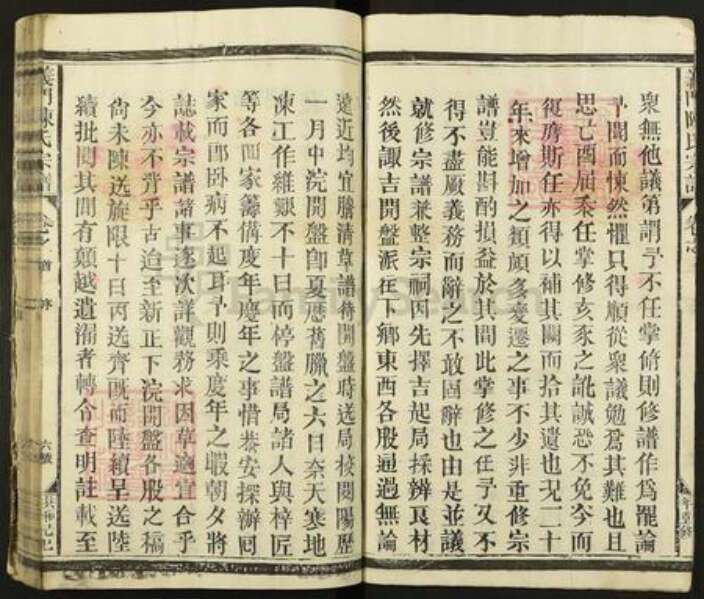 衆無他議第謂予不任掌脩則修譜作爲罷論
予聞而悚然懼只得順從衆議勉爲其難也且
思己酉屆忝任掌修亥豕之訛誠恐不免今而
復膺斯任亦得以補其闕而拾其遺也况二十
年來增加之類頗多變遷之事不少非重修宗
譜豈能斟酌損益於其間此掌修之任予又不
得不盡厥義務而辭之不敢固辭也由是並議
就修宗譜兼整宗祠因先擇吉起局採辦良材
然後諏吉開盤派往下鄉東西各股通過無論
遠近均宜謄清草譜待開盤時送局校閱陽歷
一月中浣開盤卽夏歷舊臘之六日奈天寒地
凍工作維艱不十日而停盤譜局諸人與梓匠
等各回家籌備度年慶年之事惜恭安採辦囘
家而卽臥病不起耳予則乘慶年之暇朝夕將
誌載宗譜諸事逐次詳觀務求因草適宜合乎
今亦不背乎古迨至新正下浣開盤各股之稿
尚未陳送旋限十日內送齊旣而陸續呈送陸
續批閱其間有顛越遺漏者轉令查明註載至
義門陳氏宗譜
卷之首
六